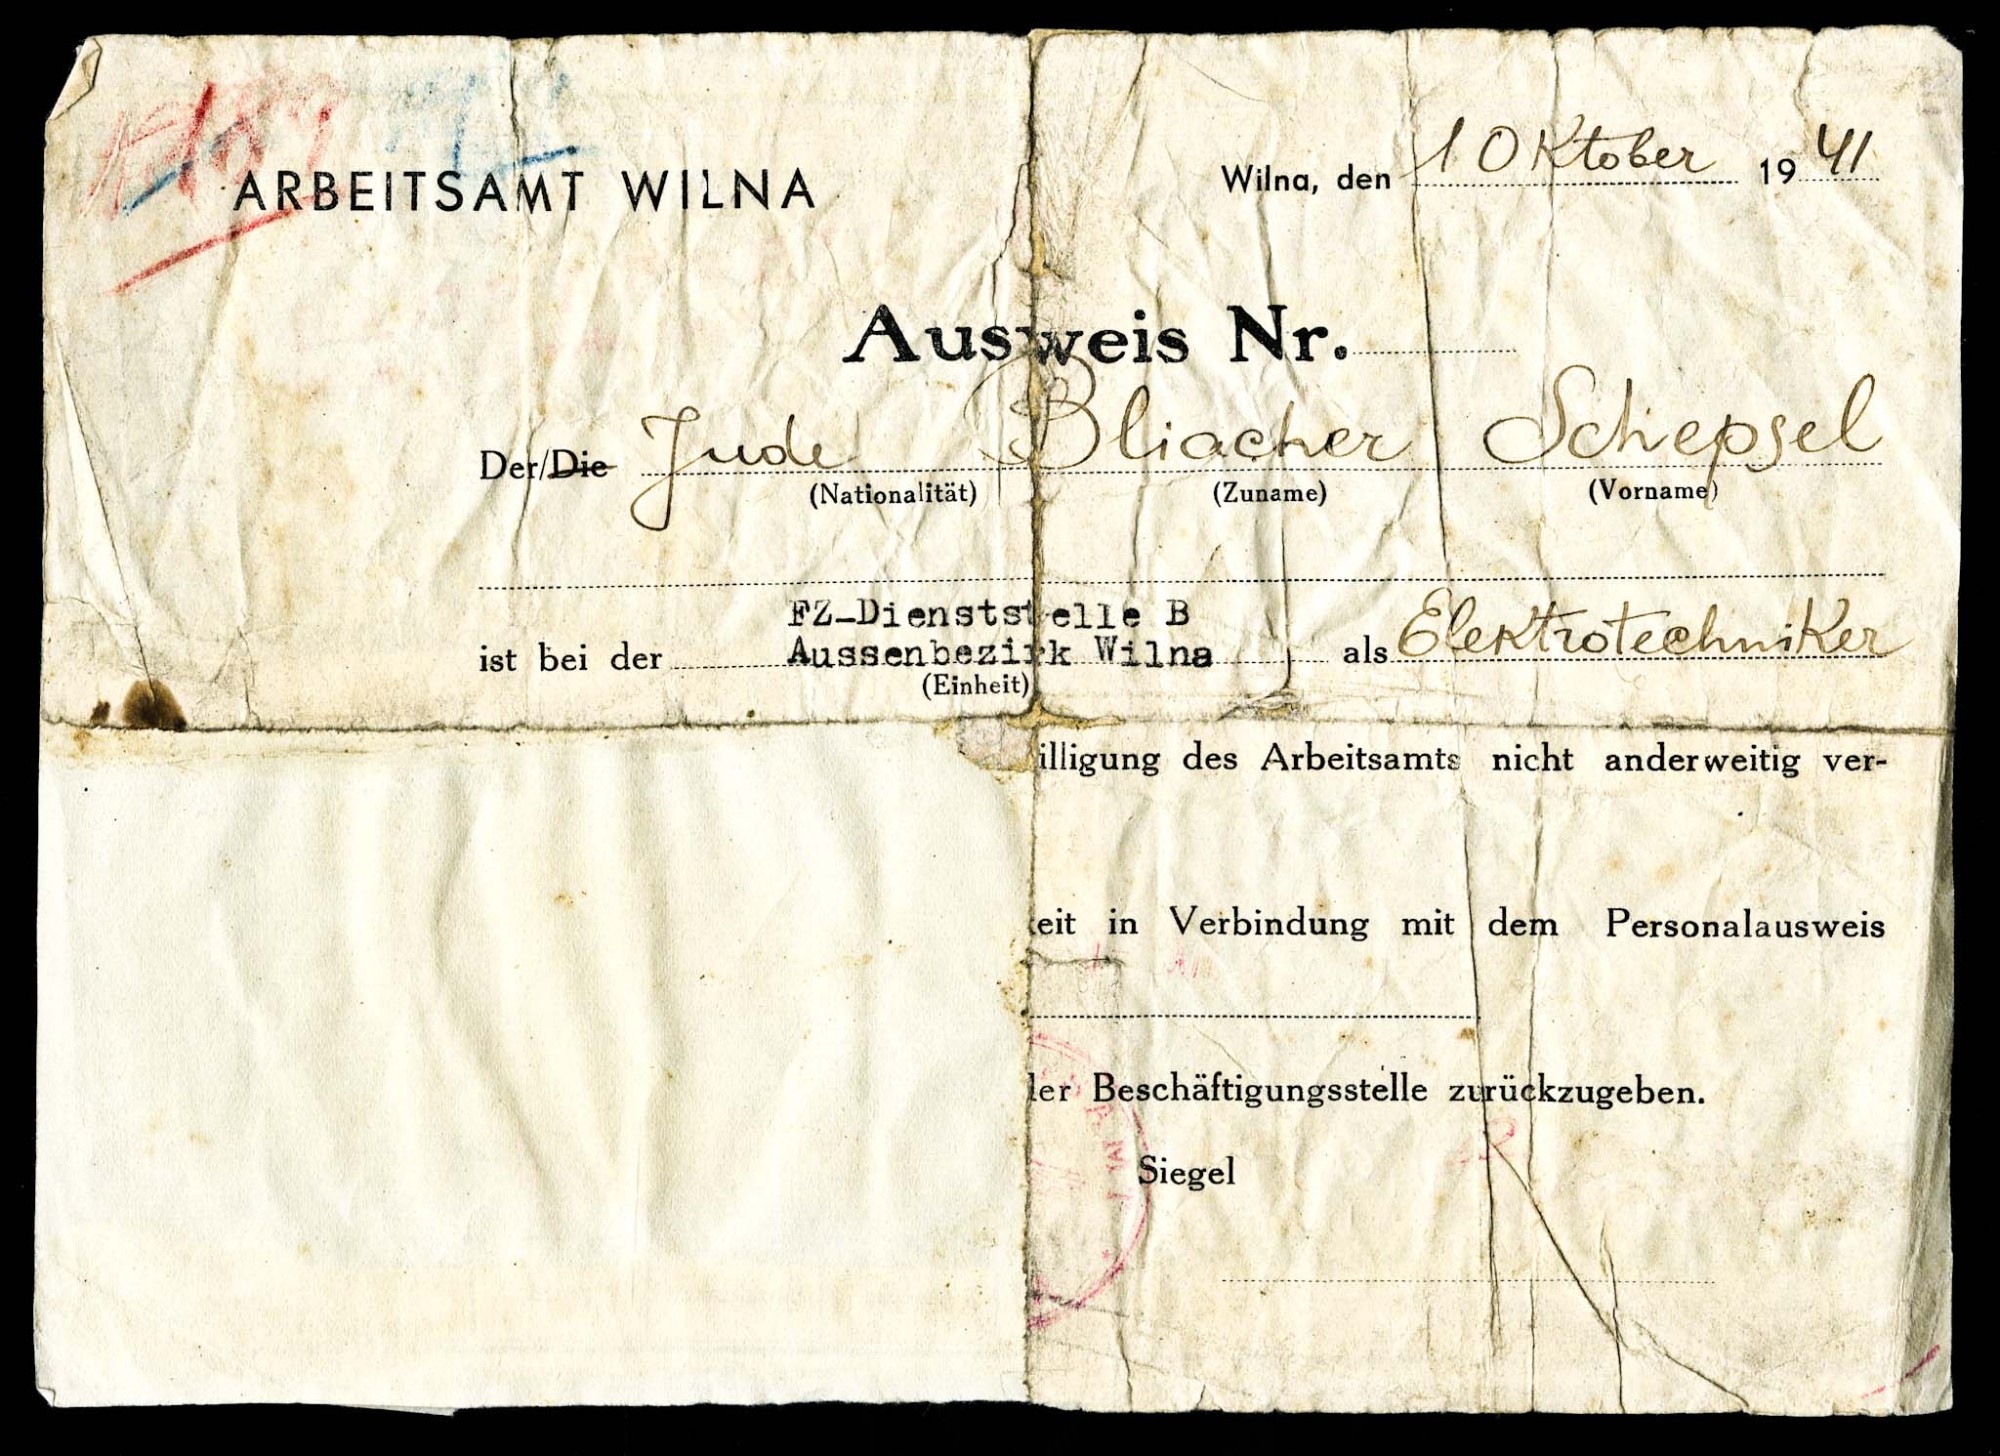 ARBEITSAMT WILNA
Wilna, den 1 Oktober 1941
Ausweis Nr.
Der/Die Jude Bliacher Schepsel
(Nationalität) (Zuname) (Vorname)
FZ-Dienststelle B
ist bei der Aussenbezirk Wilna als Elektrotechniker
(Einheit)
illigung des Arbeitsamts nicht anderweitig ver-
eit in Verbindung mit dem Personalausweis
ler Beschäftigungsstelle zurückzugeben.
Siegel